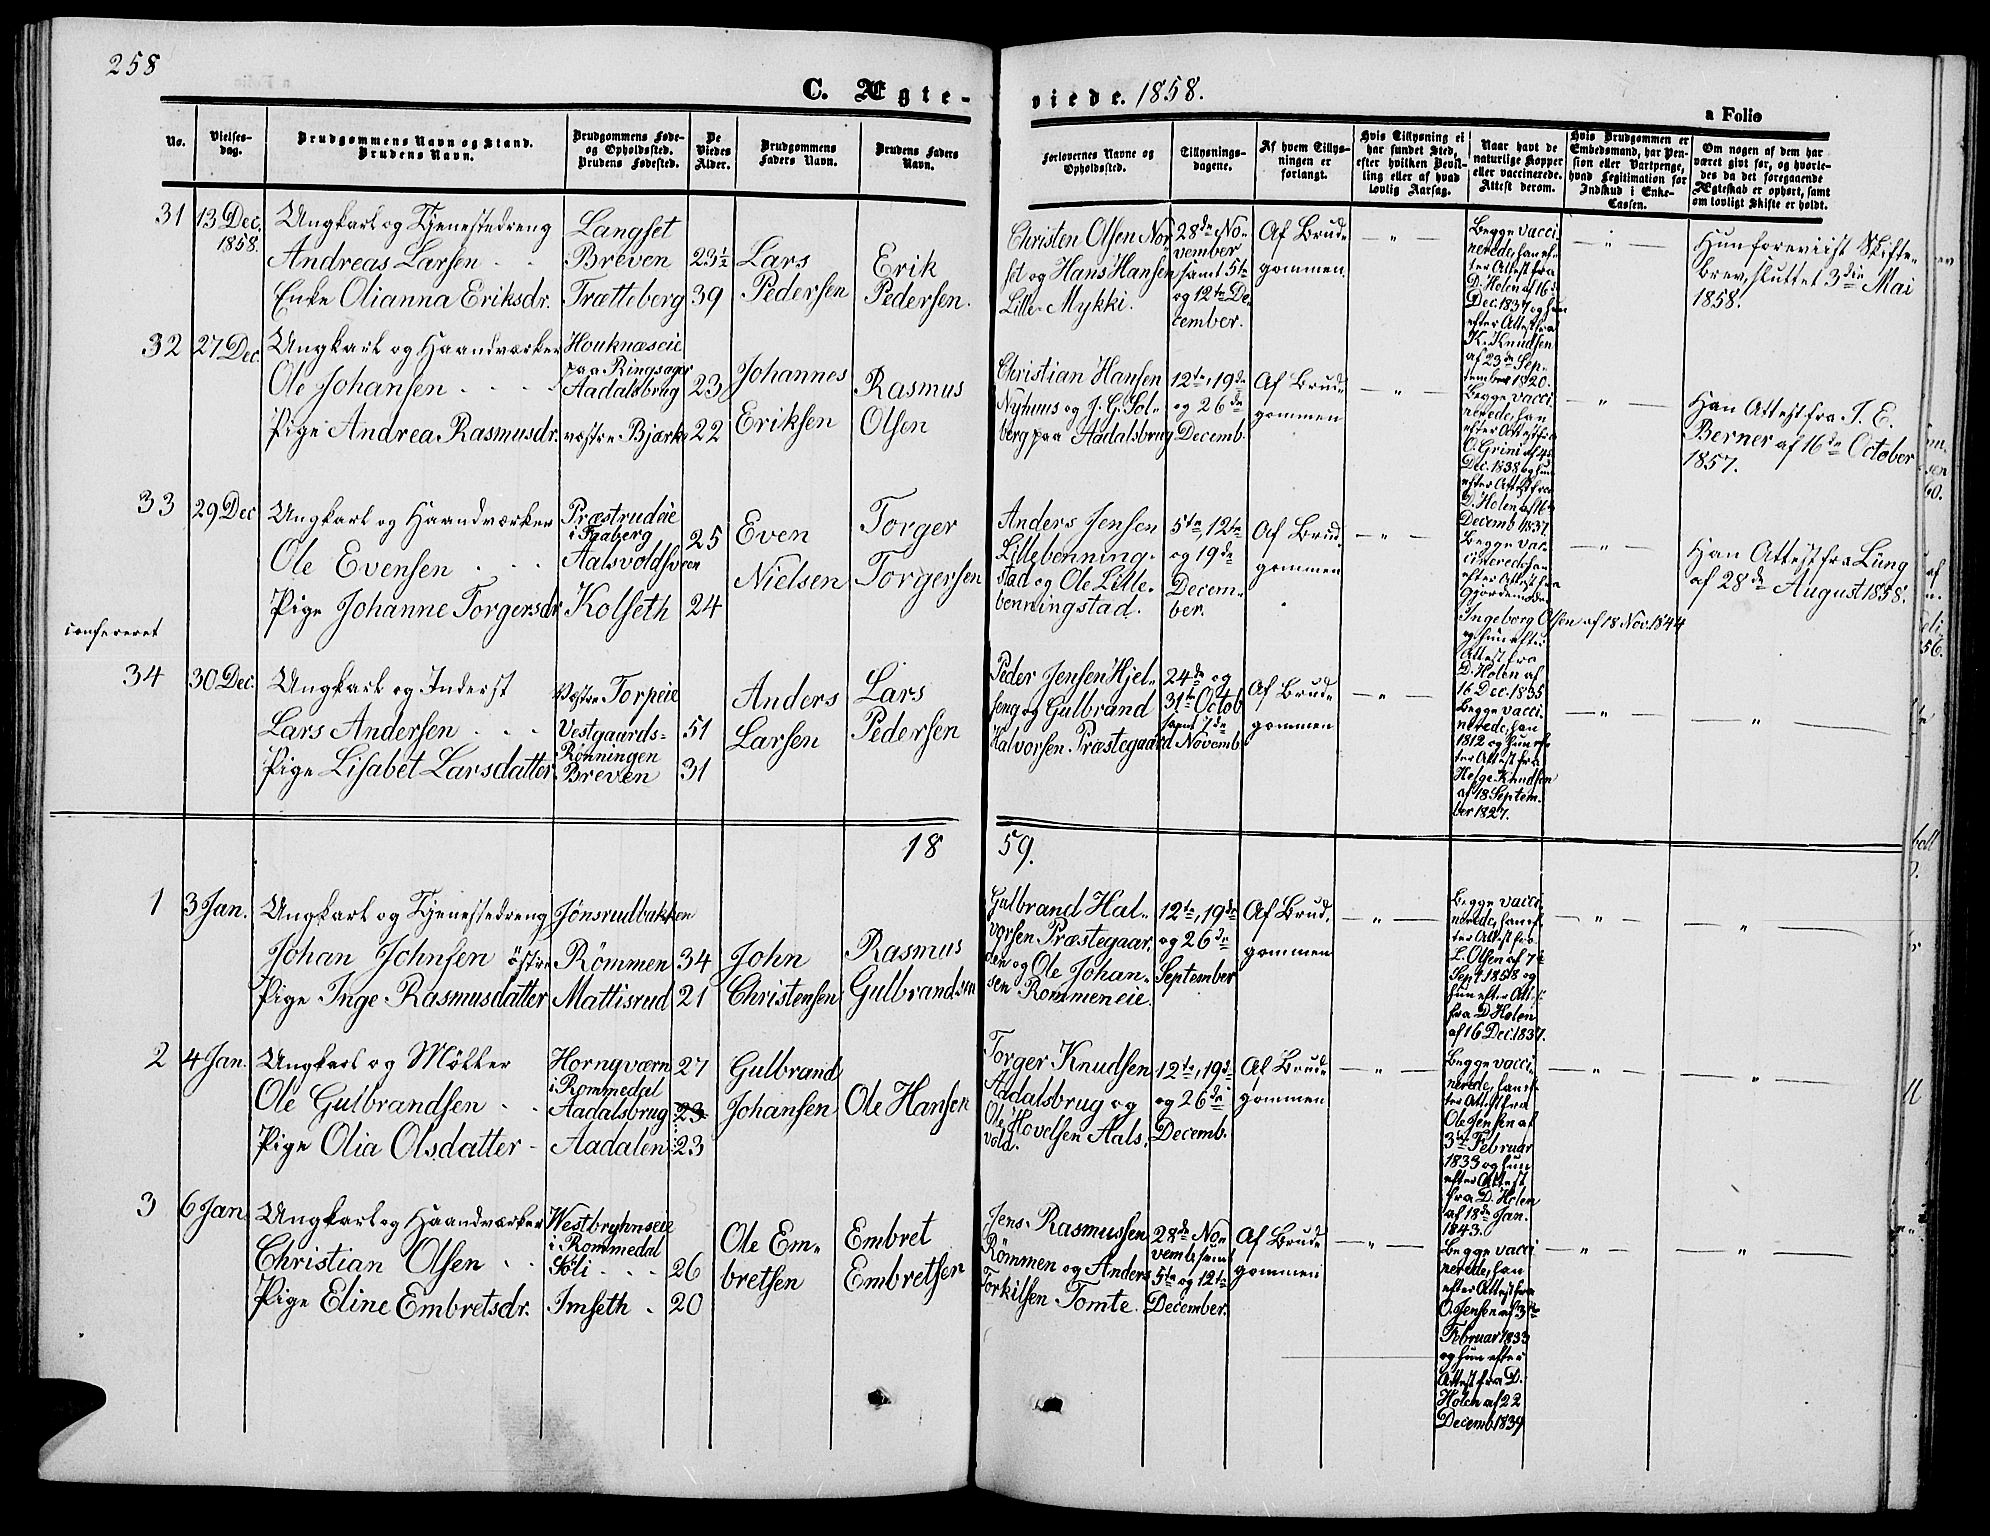 258
C. Ægte-
viede. 1858.
a Folio
No.
Vielses-
dag.
Brudgommens Navn og Stand.
Brudens Navn.
Brudgommens Føde-
og Opholdssted.
Brudens Fødested.
De
Viedes
Alder.
Brudgommens
Faders Navn.
Brudens Faders
Navn.
Forlovernes Navne og
Opholdssted.
Tillysnings-
dagene.
Af hvem Tillys-
ningen er
forlangt.
Hvis Tillysning ei
har fundet Sted,
efter hvilken Bevil-
ling eller af hvad
lovlig Aarsag.
Naar havt de
naturlige Kopper
eller vaccinerede.
Attest derom.
Hvis Brudgommen er
Embedsmand, har Pen-
sion eller Vartpenge,
hvad Legitimation for
Indskud i Enke-
Cassen.
Om nogen af dem har
været givt før, og hvorle-
des da det foregaaende
Ægteskab er ophørt, samt
om lovligt Skifte er holdt.
31
13 Dec.
1858.
Ungkarl og Tjenestedreng
Andreas Larsen
Enke Olianna Eriksdr.
Langset
Breven
Trætteberg
23½
39
Lars
Pedersen
Erik
Pedersen.
Christen Olsen Nor-
set og Hans Hansen
Lille Mykki.
28de No-
vember
samt 5te
og 12te De-
cember.
Af Brud-
gommen
Begge vacci-
nerede, han ef-
ter Attest fra
D. Holen af 16
Dec. 1837 og hun
efter Attest fra
K. Knudsen
af 23de Sep-
tember 1820.
Hun foreviist Skifte-
brev, sluttet 3die Mai
1858.
32
27 Dec.
Ungkarl og Haandværker
Ole Johansen
Pige Andrea Rasmusdr.
Houknæseie
paa Ringsager
Aadalsbrug
vestre Bjørke
23
22
Johannes
Eriksen
Rasmus
Olsen
Christian Hansen
Nyhuus og J. G. Sol-
berg paa Aadalsbrug
12te, 19de
og 26de
Decemb.
Af Brud-
gommen
Begge vacci-
nerede, han
efter Attest fra
O. Grini af 4
Dec. 1838 og hun
efter Attest fra
D. Holen af 16
Decemb 1837.
Han Attest fra J. E.
Berner af 16de October
1857.
33
29 Dec
Ungkarl og Haandværker
Ole Evensen
Pige Johanne Torgersdr
Præstrudeie
i Faaberg
Aalsvoldsveen
Kolseth
25
24
Even
Nielsen
Torger
Torgersen
Anders Jensen
Lillebenning-
stad og Ole Lille-
benningstad.
5te, 12te
og 19de
Decem-
ber.
Af Brud-
gommen
Begge vac-
cinerede, han
efter Attest fra
Gjordemoder
Ingeborg Olsen af 18 Nov. 1844
og hun efter
Attest fra
D. Holen af
16 Dec. 1835
Han Attest fra Lüng
af 28de August 1858.
confereret
34
30 Dec.
Ungkarl og Inderst
Lars Andersen
Pige Lisabet Larsdatter
Vestre Torpeie
Vestgaards-
Rønningen
Breven
51
31
Anders
Larsen
Lars
Pedersen
Peder Jensen Hjel-
seng og Gulbrand
Halvorsen Præstegaard
24de og
31te Octob
samt 7de
Novemb
Af Brud-
gommen
Begge vacci-
nerede, han
1812 og hun ef-
ter Attest fra
Helge Knudsen
af 18 Septem-
ber 1827.
1859.
1
3 Jan.
Ungkarl og Tjenestedreng
Johan Johnsen
Pige Inge Rasmusdatter
Jönsrudbakken
östre Römmen
Mattisrud
34
21
John
Christensen
Rasmus
Gulbrandsen
Gulbrand Hal-
vorsen Præstegaar-
den og Ole Johan-
sen Rommeneie.
12te, 19de
og 26de
September
Af Brud-
gommen
Begge vacci-
nerede, han ef-
ter Attest fra
L. Olsen af 7de
Sept 1858 og
hun efter Att.
fra D. Holen
af 16 Dec. 1837.
2
4 Jan.
Ungkarl og Möller
Ole Gulbrandsen
Pige Olia Olsdatter
Hornqværn
i Rommedal
Aadalsbrug
Aadalen
27
23
23
Gulbrand
Johansen
Ole Hansen
Torger Knudsen
Aadalsbrug og
Ole Hovelsen Aals-
vold.
12te, 19de
og 26de
Decemb.
Af Brud-
gommen
Begge vacci-
nerede, han ef-
ter Attest fra
Ole Jensen af
3die Februar
1833 og hun
efter Attest
fra D. Holen
af 18de Jan.
1843.
3
6 Jan
Ungkarl og Haandværker
Christian Olsen
Pige Eline Embretsdr.
Westbryhnseie
i Rommedal
Söli
Imseth
26
20
Ole Em-
bretsen
Embret
Embretsen
Jens Rasmussen
Römmen og Anders
Torkilsen Tomte.
28de No-
vemb samt
5te og 12te
December.
Af Brud-
gommen
Begge vacci-
nerede, han
efter Attest fra
O. Jensen af 3die
Februar 1833
og hun efter
Attest fra D.
Holen af 22
Decemb 1839